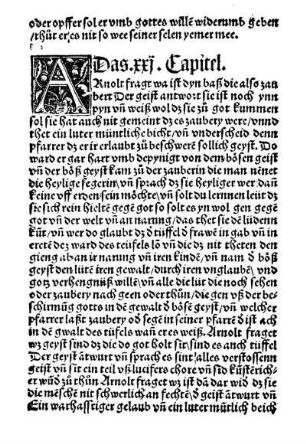 oder opffer sol er vmb gottes willē widerumb geben
/thür er es nit so wee seiner selen yemer mee.
Das .xxj. Capitel.
ARnolt fragt wa ist dyn baß die also zau
bert Der geist antwort sie ist noch ynn
pyn vn̄ weiß wol dz sie zů got kummen
sol sie hat auch nit gemeint dz es zabery were/vnnd
thet ein luter müntliche bicht/vn̄ vnderscheid denn
pfarrer dz er ir erlaubt zů beschwerē sollich geyst. Do
ward er gar hart vmb gepynigt von dem bösen geist
vn̄ der böß geyst kam zů der zauberin die man nēnet
die heylige fegerin/vn̄ sprach dz sie heyliger wer/dan̄
keine vff erden sein möchte/vn̄ solt du lernnen leit dz
sie sich rein hielte gegē got so solt es yn wol gen gegē
got vn̄ der welt vn̄ an narung/das thet sie dē lüten
kūt/vn̄ wer do glaubt dz d tüffel d frawē in gab vn̄ in
eretē dez ward des teifels lō vn̄ die dz nit theten den
gieng ab an ir narung vn̄ iren kindē/vn̄ nam d böß
geyst den lüte irē gewalt/durch iren vnglaubē/vnd
gotz verhengnüß willē/vn̄ alle die lüt die noch sehen
oder zaubery nach geen oder thůn/die gen vß der be-
schirmūg gotts in dē gewalt d bösē geyst/vn̄ welcher
pfarrer laßt zaubery od segē in seiner pfarrē d ist ach
in dē gwalt des tüfels wan er es weiß. Arnolt fraget
wz geyst sind dz die do got holt sit. sind es auch tüffel
Der geist ātwurt vn̄ sprach es sint/alles verstossenn
geyst vn̄ sit ein teil vß lucifers chore vn̄ sid küsterich-
er wūd zů thůn Arnolt fraget wz ist dā dar wid dz sie
die mēsche nit schwerlich an fechtē/d geist ātwurt vn̄
Ein warhafftiger gelaub vn̄ ein luter mütlich beicht